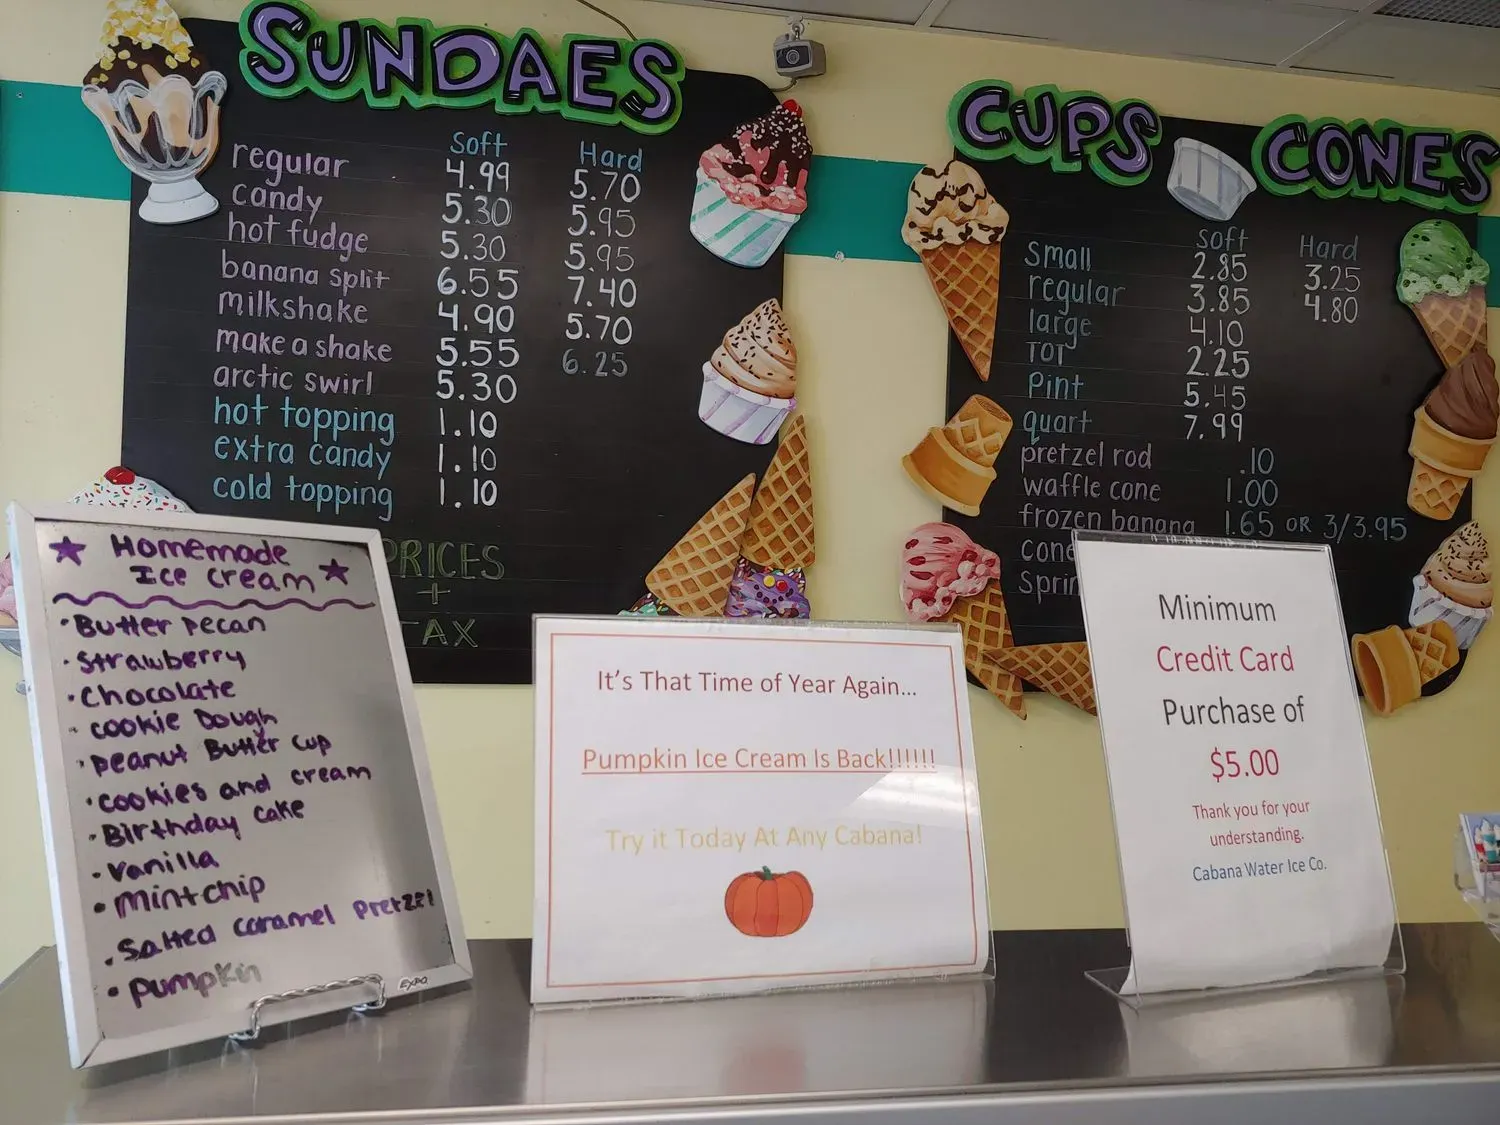 SUNDAES
Soft Hard
regular 4.99 5.70
candy 5.30 5.95
hot fudge 5.30 5.95
banana split 6.55 7.40
milkshake 4.90 5.70
make a shake 5.55 6.25
arctic swirl 5.30
hot topping 1.10
extra candy 1.10
cold topping 1.10
PRICES
+
TAX
CUPS CONES
Soft Hard
Small 2.85 3.25
regular 3.85 4.80
large 4.10
TOT 2.25
Pint 5.45
quart 7.99
pretzel rod .10
waffle cone 1.00
frozen banana 1.65 OR 3/3.95
cone
Sprin
Homemade
Ice cream
• Butter pecan
• Strawberry
• Chocolate
• cookie Dough
• peanut Butter cup
• cookies and cream
• Birthday cake
• vanilla
• mint chip
• Salted caramel pretzel
• pumpkin
EXPO
It's That Time of Year Again...
Pumpkin Ice Cream Is Back!!!!!!
Try it Today At Any Cabana!
Minimum
Credit Card
Purchase of
$5.00
Thank you for your
understanding.
Cabana Water Ice Co.